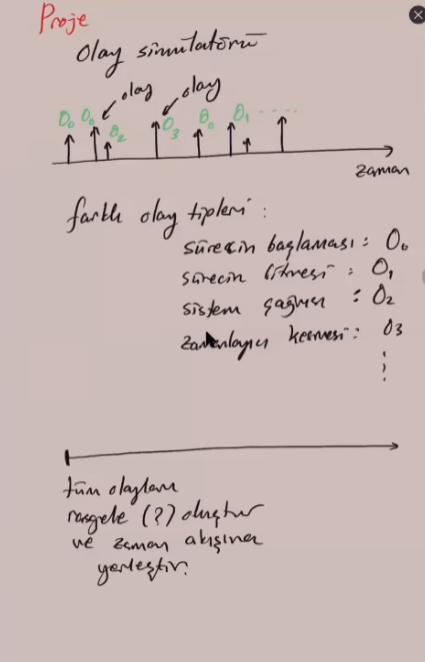 Proje
Olay simülatörü
olay olay
O₀ O₀ O₂ O₃ O₀ O₁ ....
zaman
farklı olay tipleri :
sürecin başlaması : O₀
sürecin bitmesi : O₁
sistem çağrısı : O₂
zamanlayıcı kesmesi : O3
tüm olayları
rasgele (?) oluştur
ve zaman akışına
yerleştir.